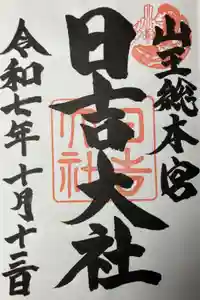 山王総本宮
日吉大社
令和七年十月十三日